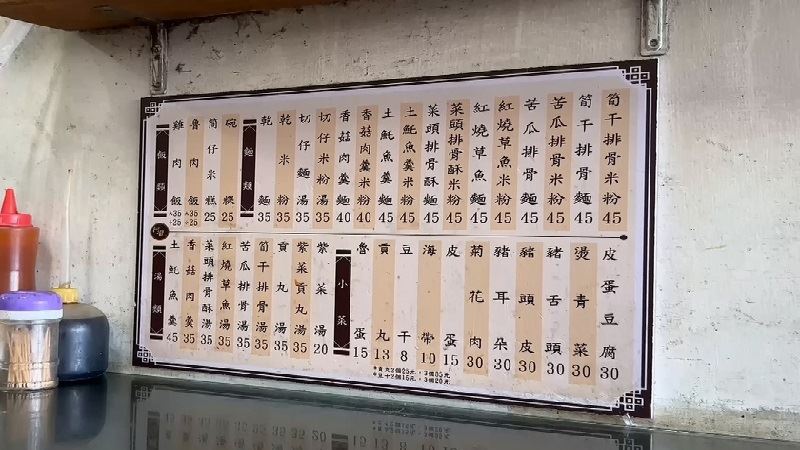 飯類
雞肉飯 大35 小25
魯肉飯 大35 小25
筒仔米糕 25
碗粿 25
麵類
乾麵 35
乾米粉 35
切仔麵湯 35
切仔米粉湯 35
香菇肉羹麵 40
香菇肉羹米粉 40
土魠魚羹麵 45
土魠魚羹米粉 45
菜頭排骨酥麵 45
菜頭排骨酥米粉 45
紅燒草魚麵 45
紅燒草魚米粉 45
苦瓜排骨麵 45
苦瓜排骨米粉 45
筍干排骨麵 45
筍干排骨米粉 45
湯類
土魠魚羹 45
香菇肉羹 35
菜頭排骨酥湯 35
紅燒草魚湯 35
苦瓜排骨湯 35
筍干排骨湯 35
貢丸湯 35
紫菜貢丸湯 35
紫菜湯 20
小菜
魯蛋 15
貢丸 13
豆干 8
海帶 10
皮蛋 15
菊花肉 30
豬耳朵 30
豬頭皮 30
豬舌頭 30
燙青菜 30
皮蛋豆腐 30